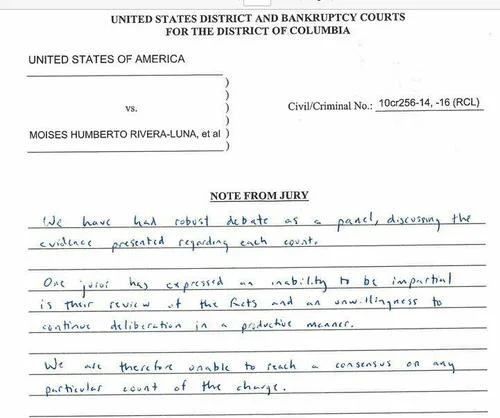 UNITED STATES DISTRICT AND BANKRUPTCY COURTS
FOR THE DISTRICT OF COLUMBIA
UNITED STATES OF AMERICA
)
)
vs.
)
Civil/Criminal No.: 10cr256-14, -16 (RCL)
)
MOISES HUMBERTO RIVERA-LUNA, et al )
)
NOTE FROM JURY
We have had robust debate as a panel, discussing the
evidence presented regarding each count.
One juror has expressed an inability to be impartial
is their review of the facts and an unwillingness to
continue deliberation in a productive manner.
We are therefore unable to reach a consensus on any
particular count of the charge.